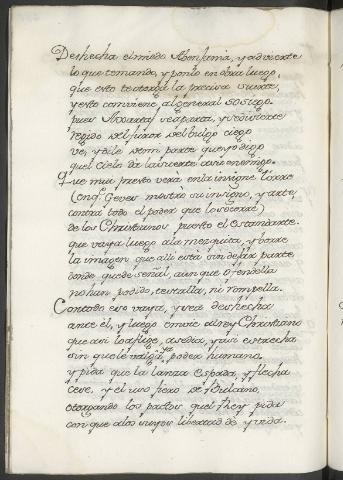 Deshecha el miedo Abenfania, y advierte
lo que te mando, y ponlo en obra luego,
que esto te otorga la precisa suerte,
y esto conviene al general sosiego.
pues Mo y se aparta, y se divierte
regido del furor del bulgo ciego
ve, y dile de mi parte que yo digo
quel cielo da la suerte a su enemigo.
Que mui presto verá en la insigne torre
(en q. Gever mostró su ingenio, y arte,
contra todo el poder que lo socorre)
de los Christianos puesto el estandarte.
que vaya luego a la mezquita, y borre
la imagen que alli está sin dejar parte
donde quede señal, aun que ofendella
no han podido, testalla, ni rompella.
Con todo eso vaya, y sea deshecha
ante él, y luego embie al rey Christiano
que asi lo aflige, asedia, y asi estrecha
sin que le valga ya poder humano.
y pida que la lanza espada, y flecha
cese, y el uso fiero de Bulcano,
otorgando los pactos quel rey pida
con que a los suyos libertad dé y vida.